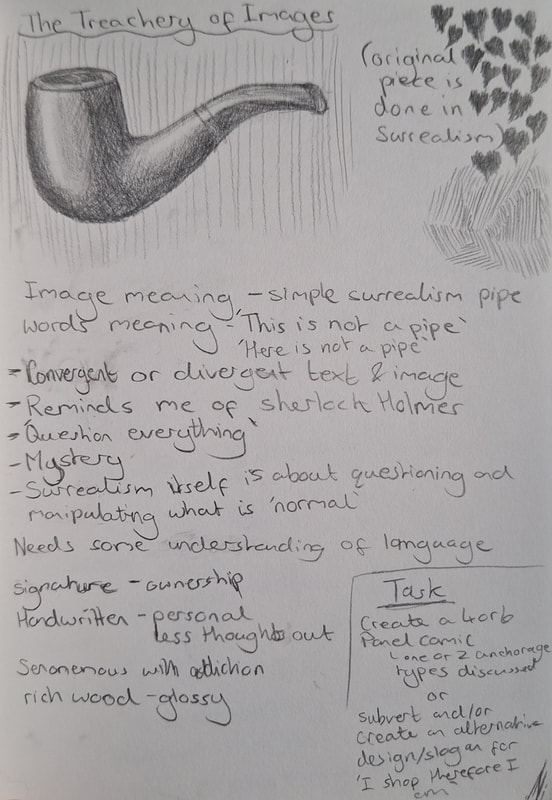 The Treachery of Images
(original
piece is
done in
Surrealism)
Image meaning - simple surrealism pipe
words meaning - 'This is not a pipe'
'Here is not a pipe'
- Convergent or divergent text & image
- Reminds me of Sherlock Holmes
- 'Question everything'
- Mystery
- Surrealism itself is about questioning and
manipulating what is 'normal'
Needs some understanding of language
signature - ownership
Handwritten - personal
less thought out
with addiction
rich wood - glossy
Task
Create a 4 or 6
Panel comic
one or 2 anchorage
types discussed
or
subvert and/or
create an alternative
design/slogan for
'I shop therefore I
am